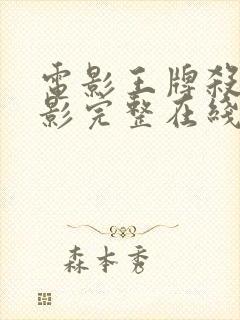 電影王牌殺
影完整在綫
森本秀